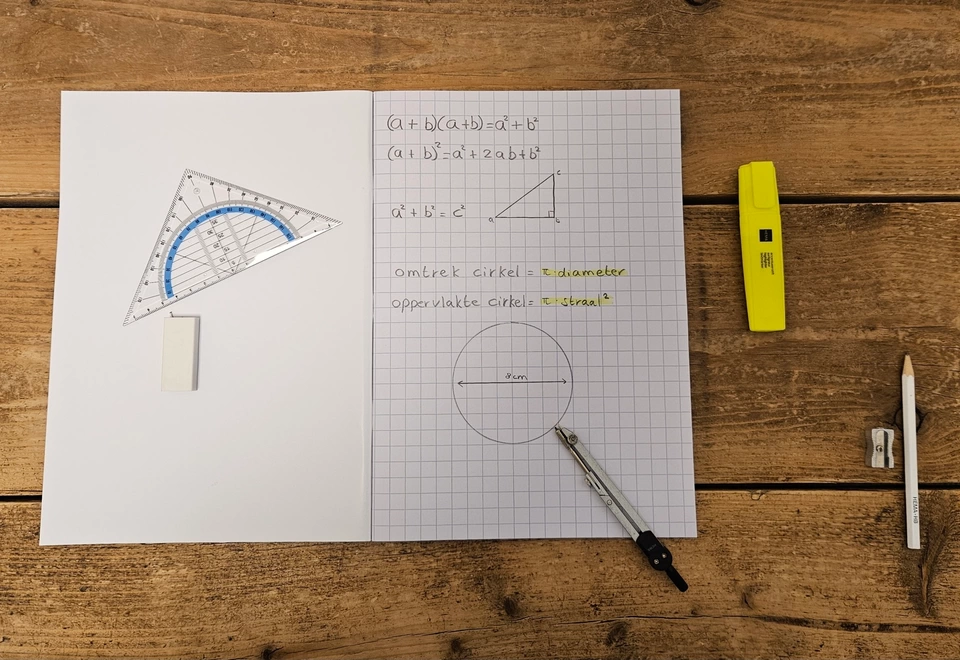 (a + b)(a + b) = a² + b²
(a + b)² = a² + 2ab + b²
a² + b² = c²
c
a
omtrek cirkel = π·diameter
oppervlakte cirkel = π·straal²
8 cm
HEMA-HB